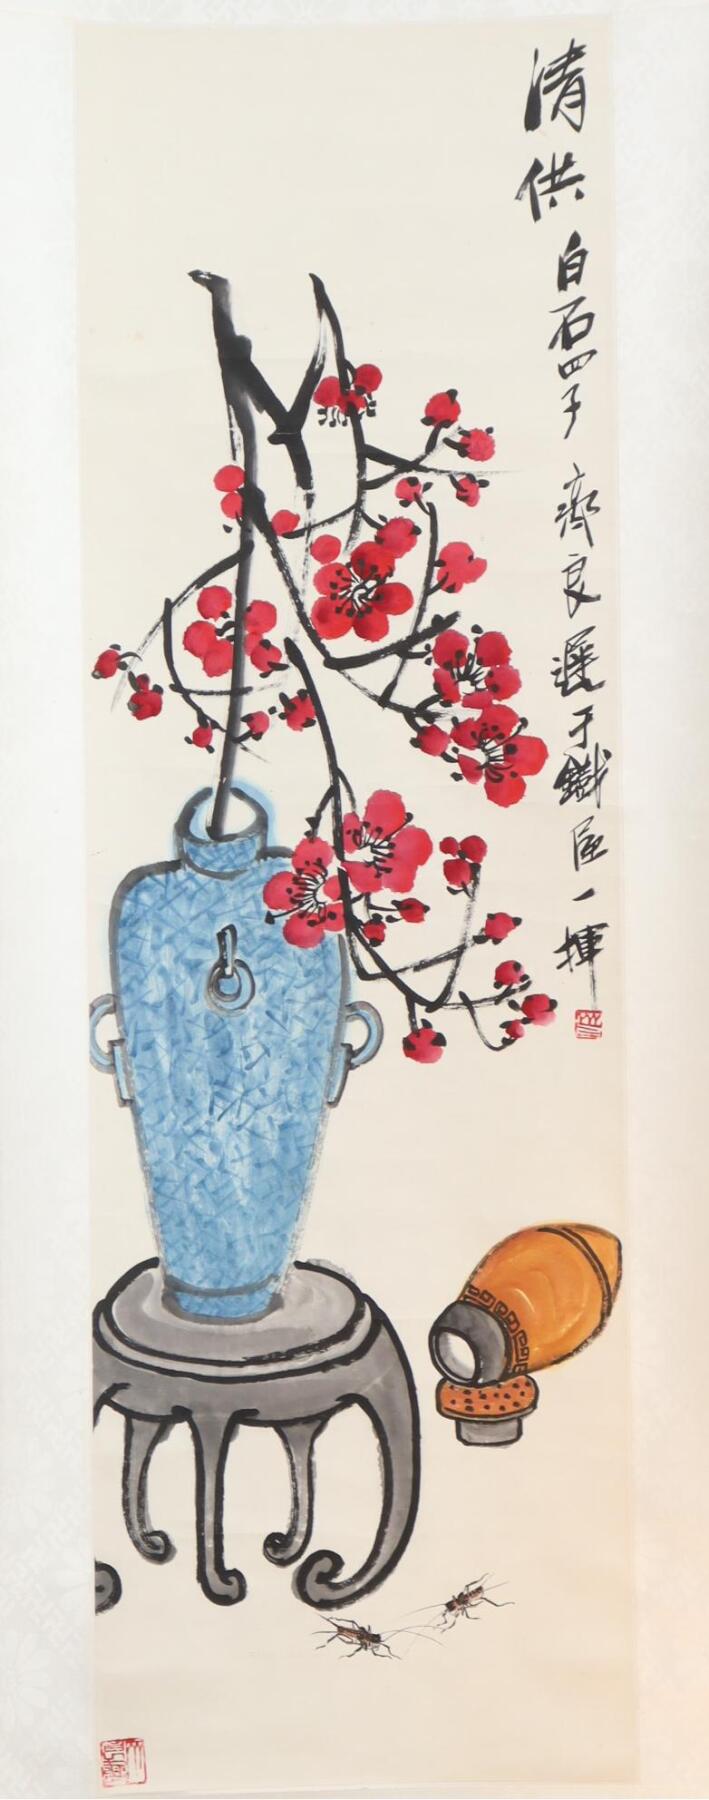 清供 白石四子 齊良遲于鐵屋一揮